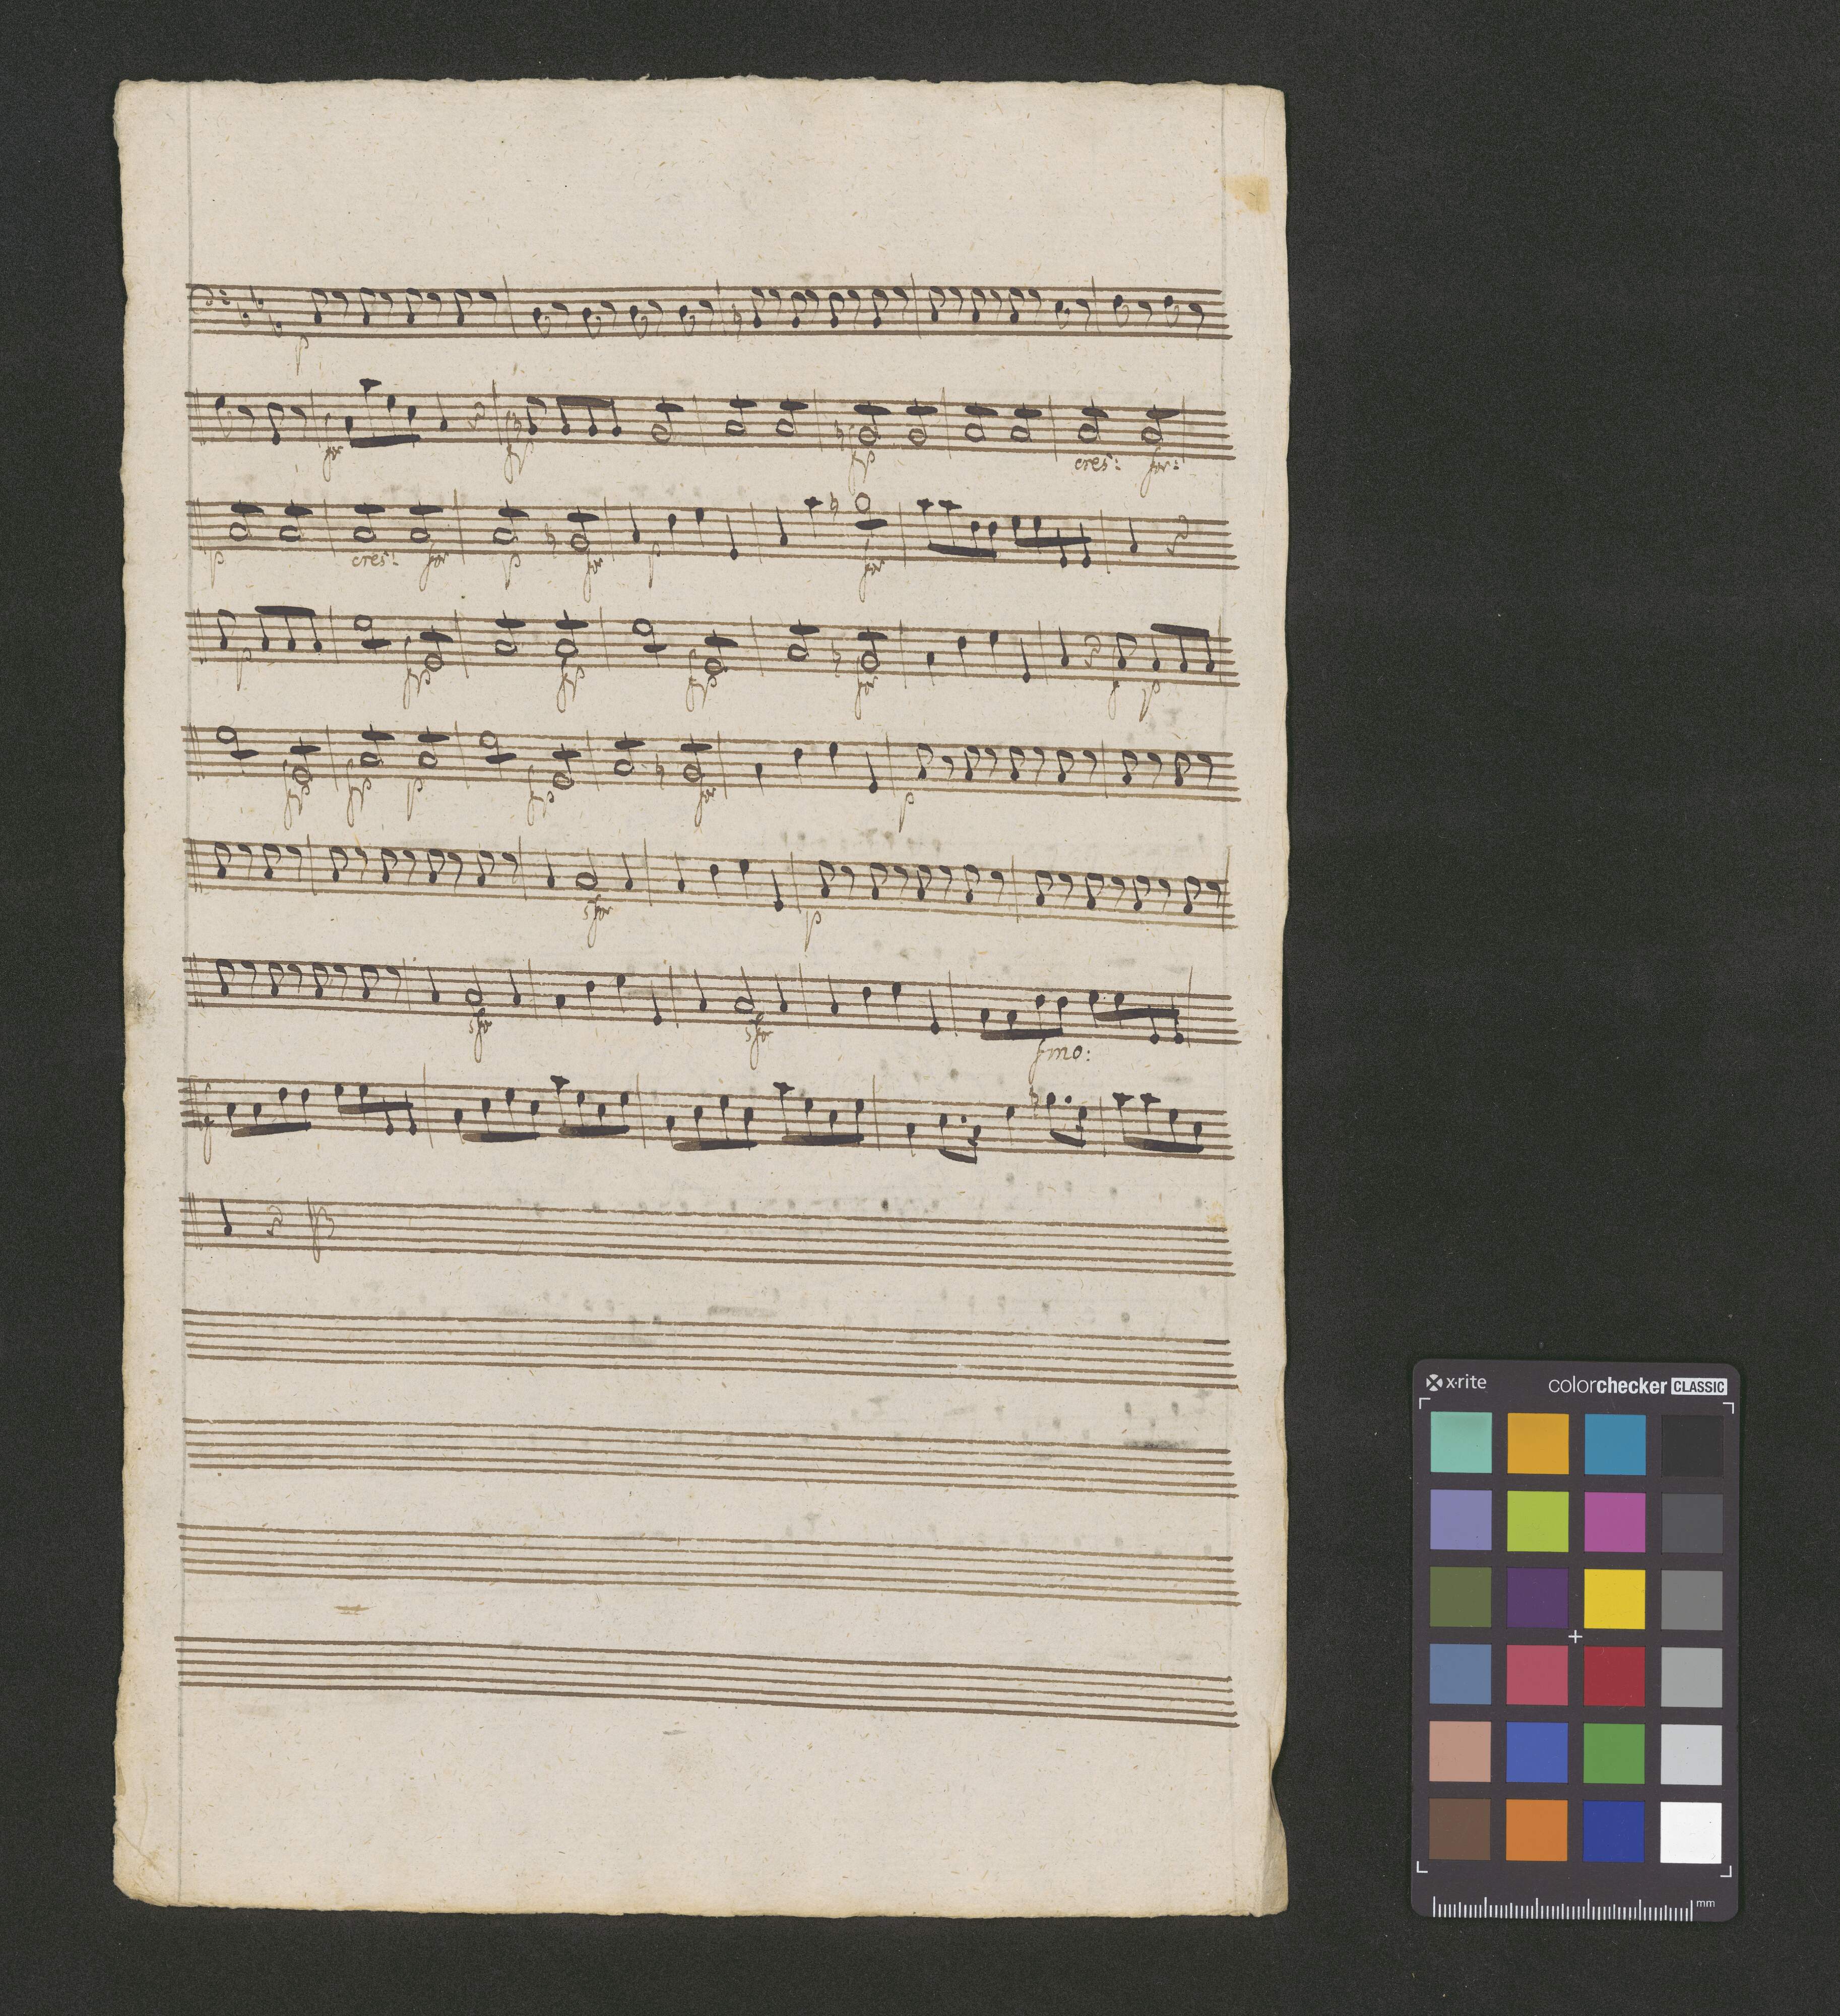 p
for fp fp cres: for:
p cres: for p for p for
p fp fp fp for f p
fp fp p fp for p
sfor p
sfor sfor fmo:
f
x·rite colorchecker CLASSIC
mm